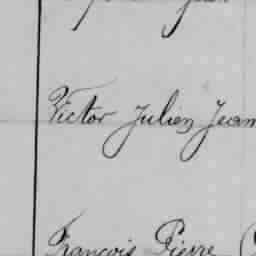 Victor Julien Jean
François Pierre